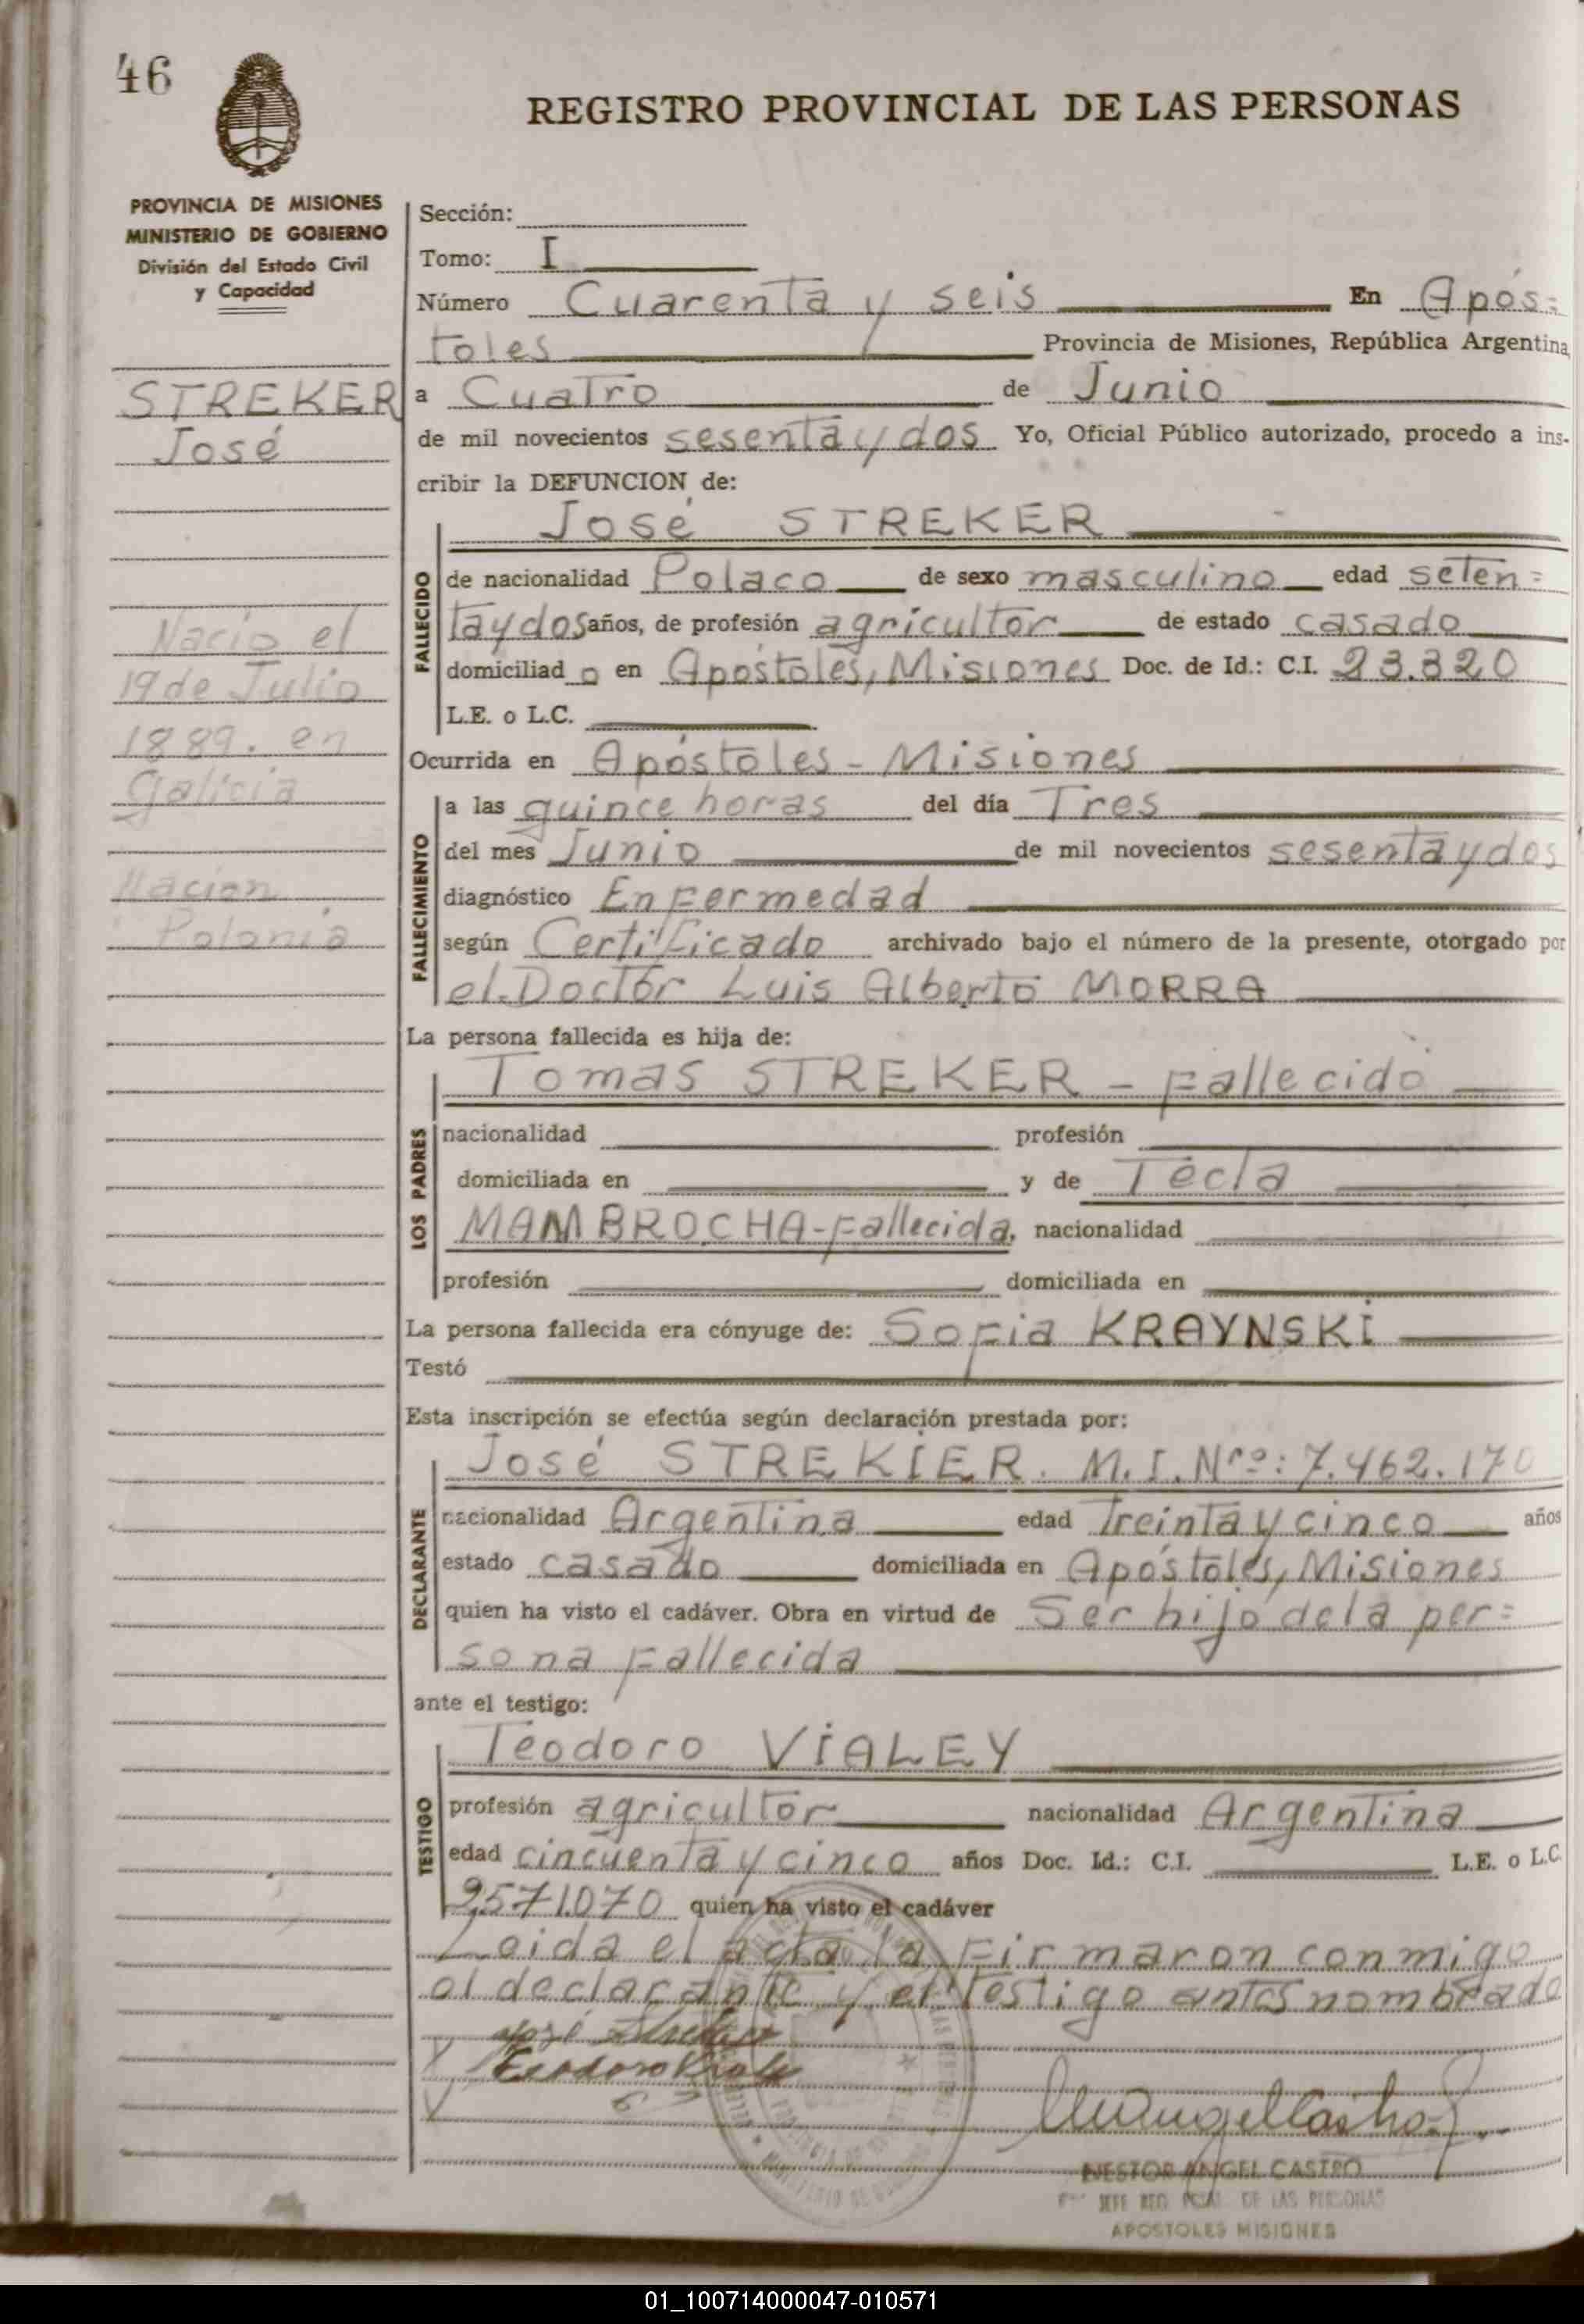 46
REGISTRO PROVINCIAL DE LAS PERSONAS
PROVINCIA DE MISIONES
MINISTERIO DE GOBIERNO
División del Estado Civil
y Capacidad
STREKER
José
Nacio el
19 de Julio
1889. en
Galicia
Nacion
Polonia
Sección:
Tomo: I
Número Cuarenta y seis En Após=
toles Provincia de Misiones, República Argentina
a Cuatro de Junio
de mil novecientos sesenta y dos Yo, Oficial Público autorizado, procedo a ins-
cribir la DEFUNCION de:
José STREKER
FALLECIDO
de nacionalidad Polaco de sexo masculino edad seten=
tay dos años, de profesión agricultor de estado casado
domiciliad o en Apóstoles, Misiones Doc. de Id.: C.I. 23.320
L.E. o L.C.
Ocurrida en Apóstoles - Misiones
FALLECIMIENTO
a las quince horas del día Tres
del mes Junio de mil novecientos sesenta y dos
diagnóstico Enfermedad
según Certificado archivado bajo el número de la presente, otorgado por
el Doctor Luis Alberto MORRA
La persona fallecida es hija de:
Tomas STREKER - Fallecido
LOS PADRES
nacionalidad profesión
domiciliada en y de Tecla
MAMBROCHA - Fallecida, nacionalidad
profesión domiciliada en
La persona fallecida era cónyuge de: Sofia KRAYNSKI
Testó
Esta inscripción se efectúa según declaración prestada por:
José STREKIER. M.I. Nro: 7.462.170
DECLARANTE
nacionalidad Argentina edad Treinta y cinco años
estado casado domiciliada en Apóstoles, Misiones
quien ha visto el cadáver. Obra en virtud de Ser hijo de la per=
sona Fallecida
ante el testigo:
Teodoro VIALEY
TESTIGO
profesión agricultor nacionalidad Argentina
edad cincuenta y cinco años Doc. Id.: C.I. L.E. o L.C.
2.571.070 quien ha visto el cadáver
Leida el acta la Firmaron conmigo
el declarante y el Testigo antes nombrado
José
Teodoro
NESTOR ANGEL CASTRO
JEFE REG. PCIAL. DE LAS PERSONAS
APOSTOLES MISIONES
01_100714000047-010571